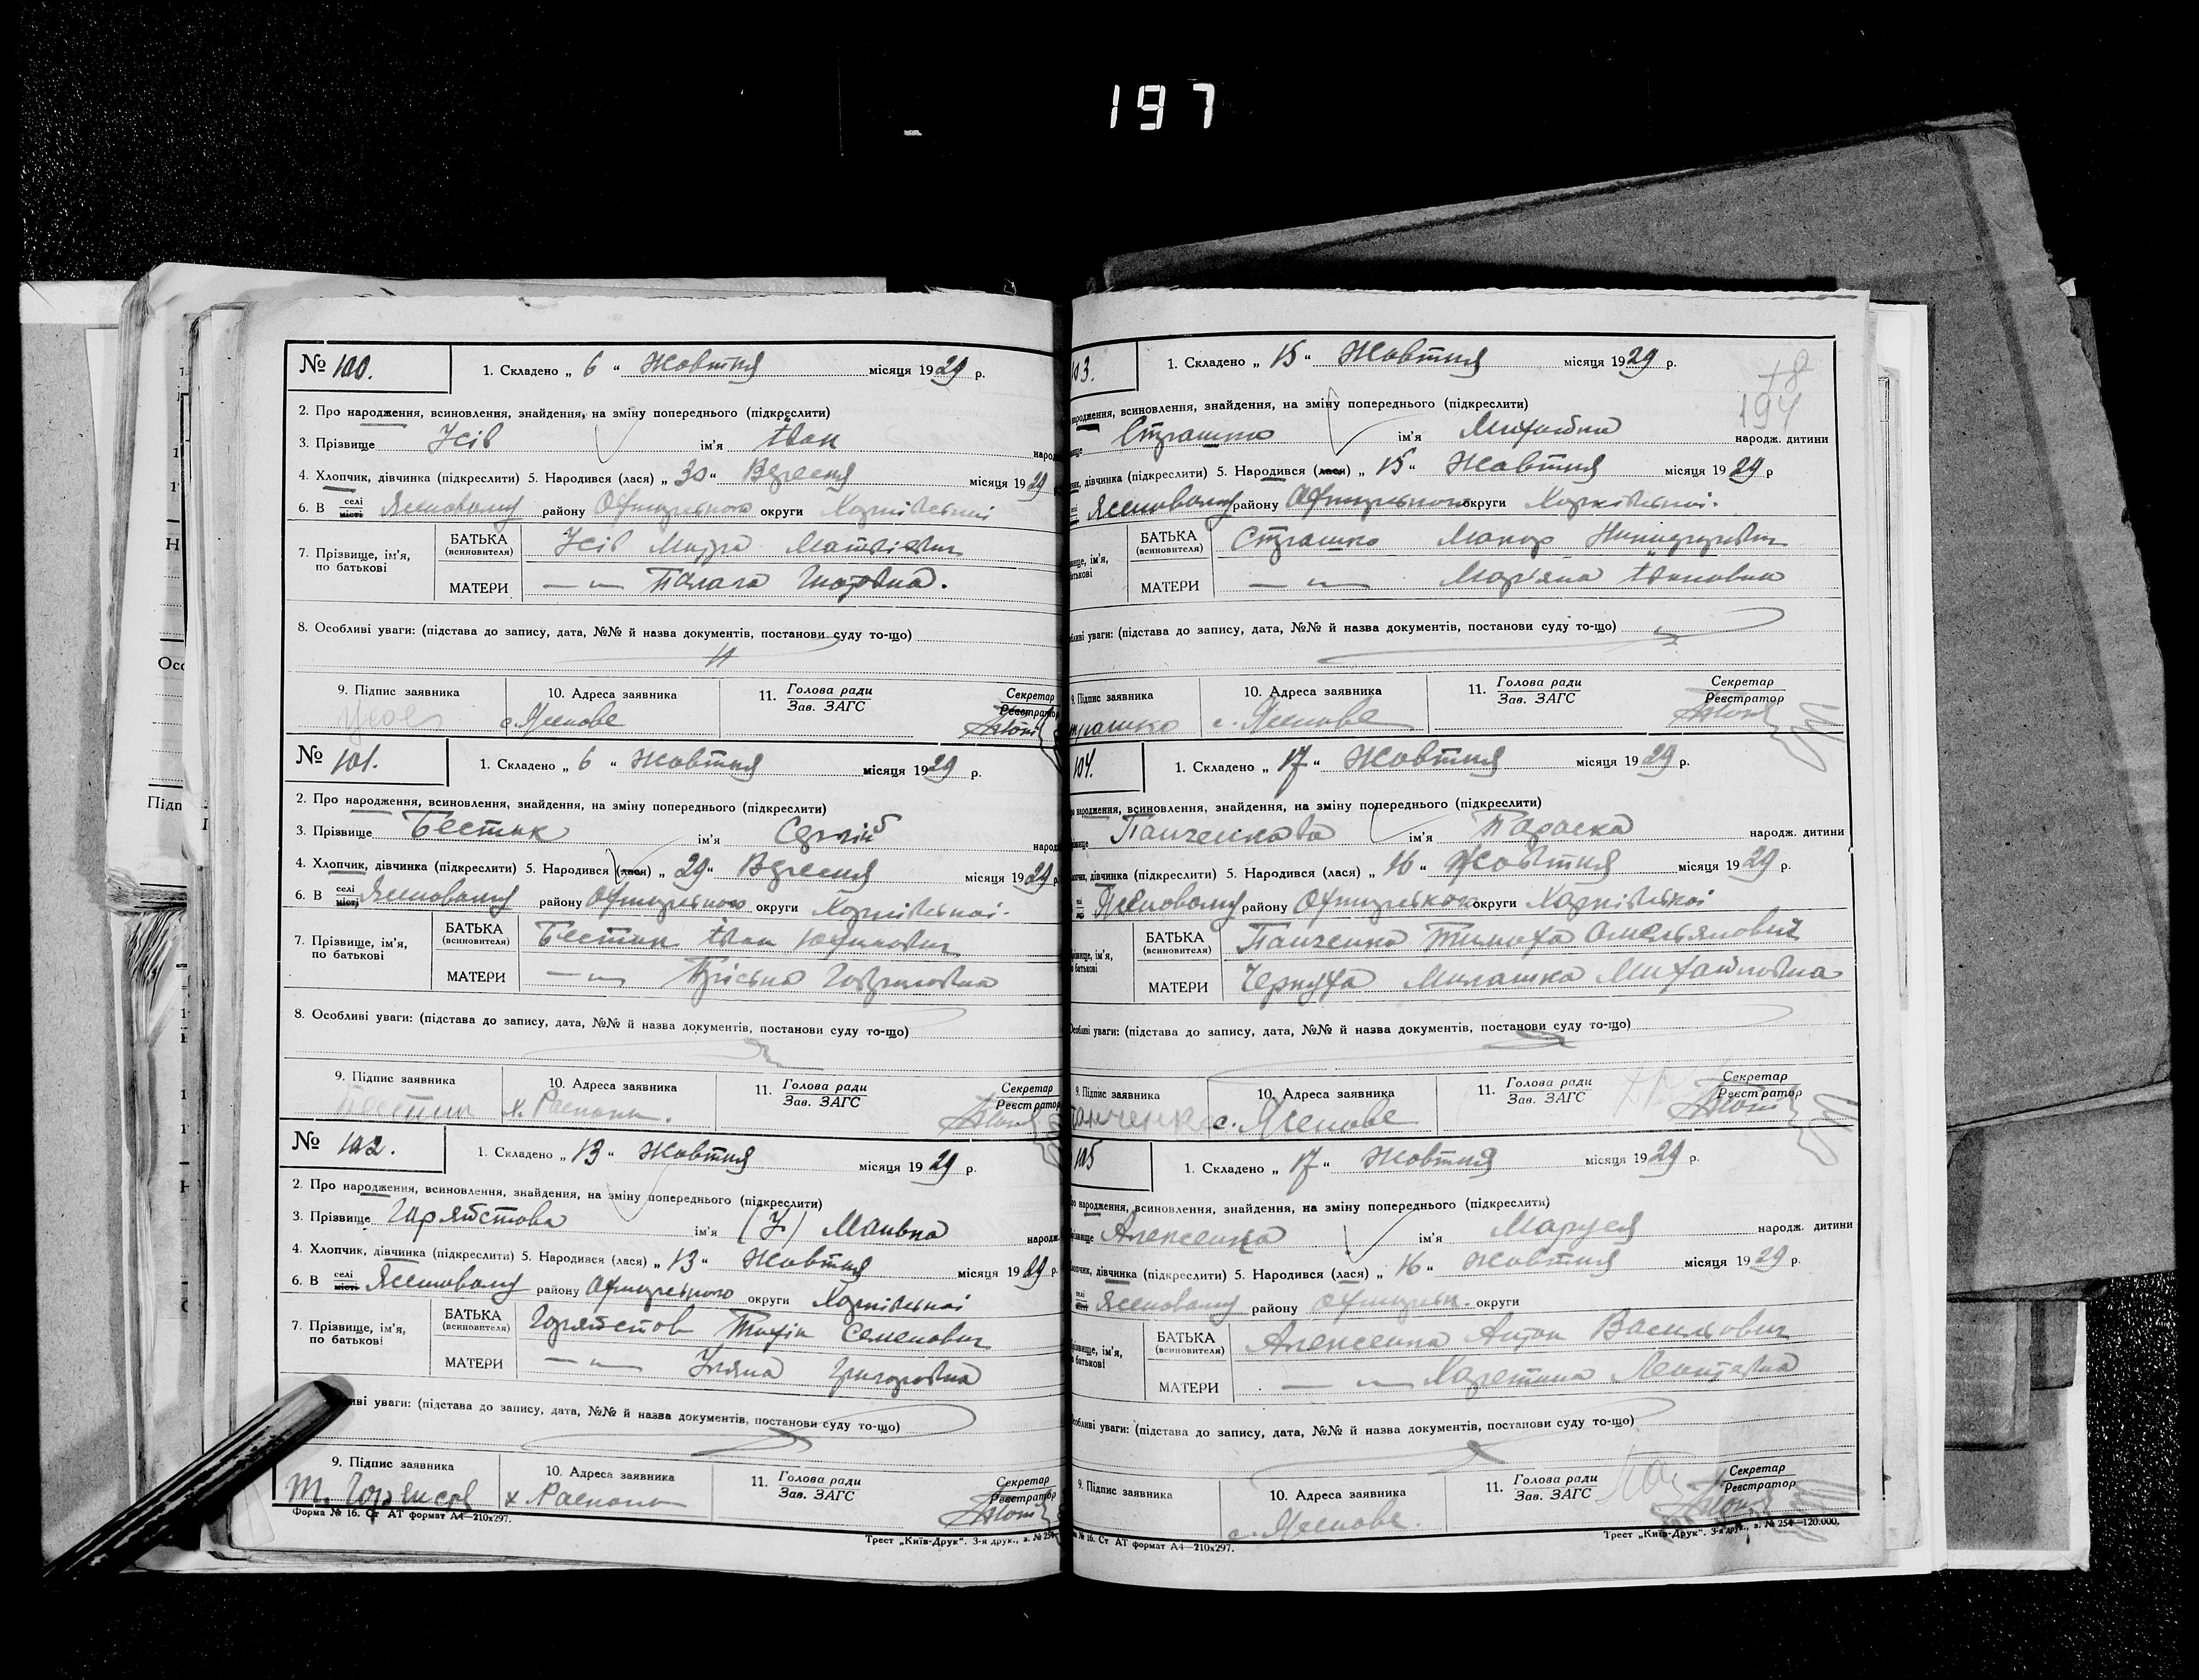 197
№ 100.
1. Складено „ 6 “ Жовтня місяця 1929 р.
2. Про народження, всиновлення, знайдення, на зміну попереднього (підкреслити)
3. Прізвище Усів ім'я Іван народ
4. Хлопчик, дівчинка (підкреслити) 5. Народився (лася) „ 30 “ Вересня місяця 1929
6. В селі місті Ясеновому району Охтирського округи Харківської
7. Прізвище, ім'я, по батькові
БАТЬКА (всиновителя) Усів Матвієвич
МАТЕРИ —„— Палага
8. Особливі уваги: (підстава до запису, дата, №№ й назва документів, постанови суду то-що)
9. Підпис заявника
10. Адреса заявника
11. Голова ради Зав. ЗАГС
Секретар Реєстратор
с. Ясенове
№ 101.
1. Складено „ 6 “ Жовтня місяця 1929 р.
2. Про народження, всиновлення, знайдення, на зміну попереднього (підкреслити)
3. Прізвище Бестик ім'я Сергій народ
4. Хлопчик, дівчинка (підкреслити) 5. Народився (лася) „ 29 “ Вересня місяця 1929 р.
6. В селі місті Ясеновому району Охтирського округи Харківської
7. Прізвище, ім'я, по батькові
БАТЬКА (всиновителя) Бестик Іван Юхимович
МАТЕРИ —„— Гавриловна
8. Особливі уваги: (підстава до запису, дата, №№ й назва документів, постанови суду то-що)
9. Підпис заявника
10. Адреса заявника
11. Голова ради Зав. ЗАГС
Секретар Реєстратор
№ 102.
1. Складено „ 13 “ Жовтня місяця 1929 р.
2. Про народження, всиновлення, знайдення, на зміну попереднього (підкреслити)
3. Прізвище ім'я (У)
4. Хлопчик, дівчинка (підкреслити) 5. Народився (лася) „ 13 “ Жовтня місяця 1929 р.
6. В селі місті Ясеновому району Охтирського округи Харківської
7. Прізвище, ім'я, по батькові
БАТЬКА (всиновителя) Семенович
МАТЕРИ —„— Уляна Григоровна
ві уваги: (підстава до запису, дата, №№ й назва документів, постанови суду то-що)
9. Підпис заявника
10. Адреса заявника
11. Голова ради Зав. ЗАГС
Секретар Реєстратор
Форма № 16. Ст АТ формат А4—210х297.
Трест „Київ-Друк“. 3-я друк., з. № 254
103.
1. Складено „ 15 “ Жовтня місяця 1929 р.
78
194
народження, всиновлення, знайдення, на зміну попереднього (підкреслити)
Страшко ім'я Михайло народж. дитини
дівчинка (підкреслити) 5. Народився (лася) „ 15 “ Жовтня місяця 1929 р
Ясеновому району Охтирського округи Харківської.
БАТЬКА (всиновителя) Страшко Макар Никифорович
МАТЕРИ —„— Мар'яна Ивановна
уваги: (підстава до запису, дата, №№ й назва документів, постанови суду то-що)
9. Підпис заявника
10. Адреса заявника
11. Голова ради Зав. ЗАГС
Секретар Реєстратор
с. Ясенове
104.
1. Складено „ 17 “ Жовтня місяця 1929 р.
народження, всиновлення, знайдення, на зміну попереднього (підкреслити)
Панченкова ім'я Параска народж. дитини
дівчинка (підкреслити) 5. Народився (лася) „ 16 “ Жовтня місяця 1929 р.
Ясеновому району Охтирського округи Харківської
БАТЬКА (всиновителя) Панченко Тимоха Омельянович
МАТЕРИ Чернуха Милашка Михайловна
Особливі уваги: (підстава до запису, дата, №№ й назва документів, постанови суду то-що)
9. Підпис заявника
10. Адреса заявника
11. Голова ради Зав. ЗАГС
Секретар Реєстратор
с. Ясенове
105
1. Складено „ 17 “ Жовтня місяця 1929 р.
народження, всиновлення, знайдення, на зміну попереднього (підкреслити)
Алексенко ім'я Маруся народж. дитини
дівчинка (підкреслити) 5. Народився (лася) „ 16 “ Жовтня місяця 1929 р.
селі Ясеновому району Охтирськ. округи
БАТЬКА (всиновителя) Алексенко Антон Васильович
МАТЕРИ —„— Харетина
уваги: (підстава до запису, дата, №№ й назва документів, постанови суду то-що)
9. Підпис заявника
10. Адреса заявника
11. Голова ради Зав. ЗАГС
Секретар Реєстратор
с. Ясенове.
№ 16. Ст АТ формат А4—210х297.
Трест „Київ-Друк“. 3-я друк., з. № 254—120.000.